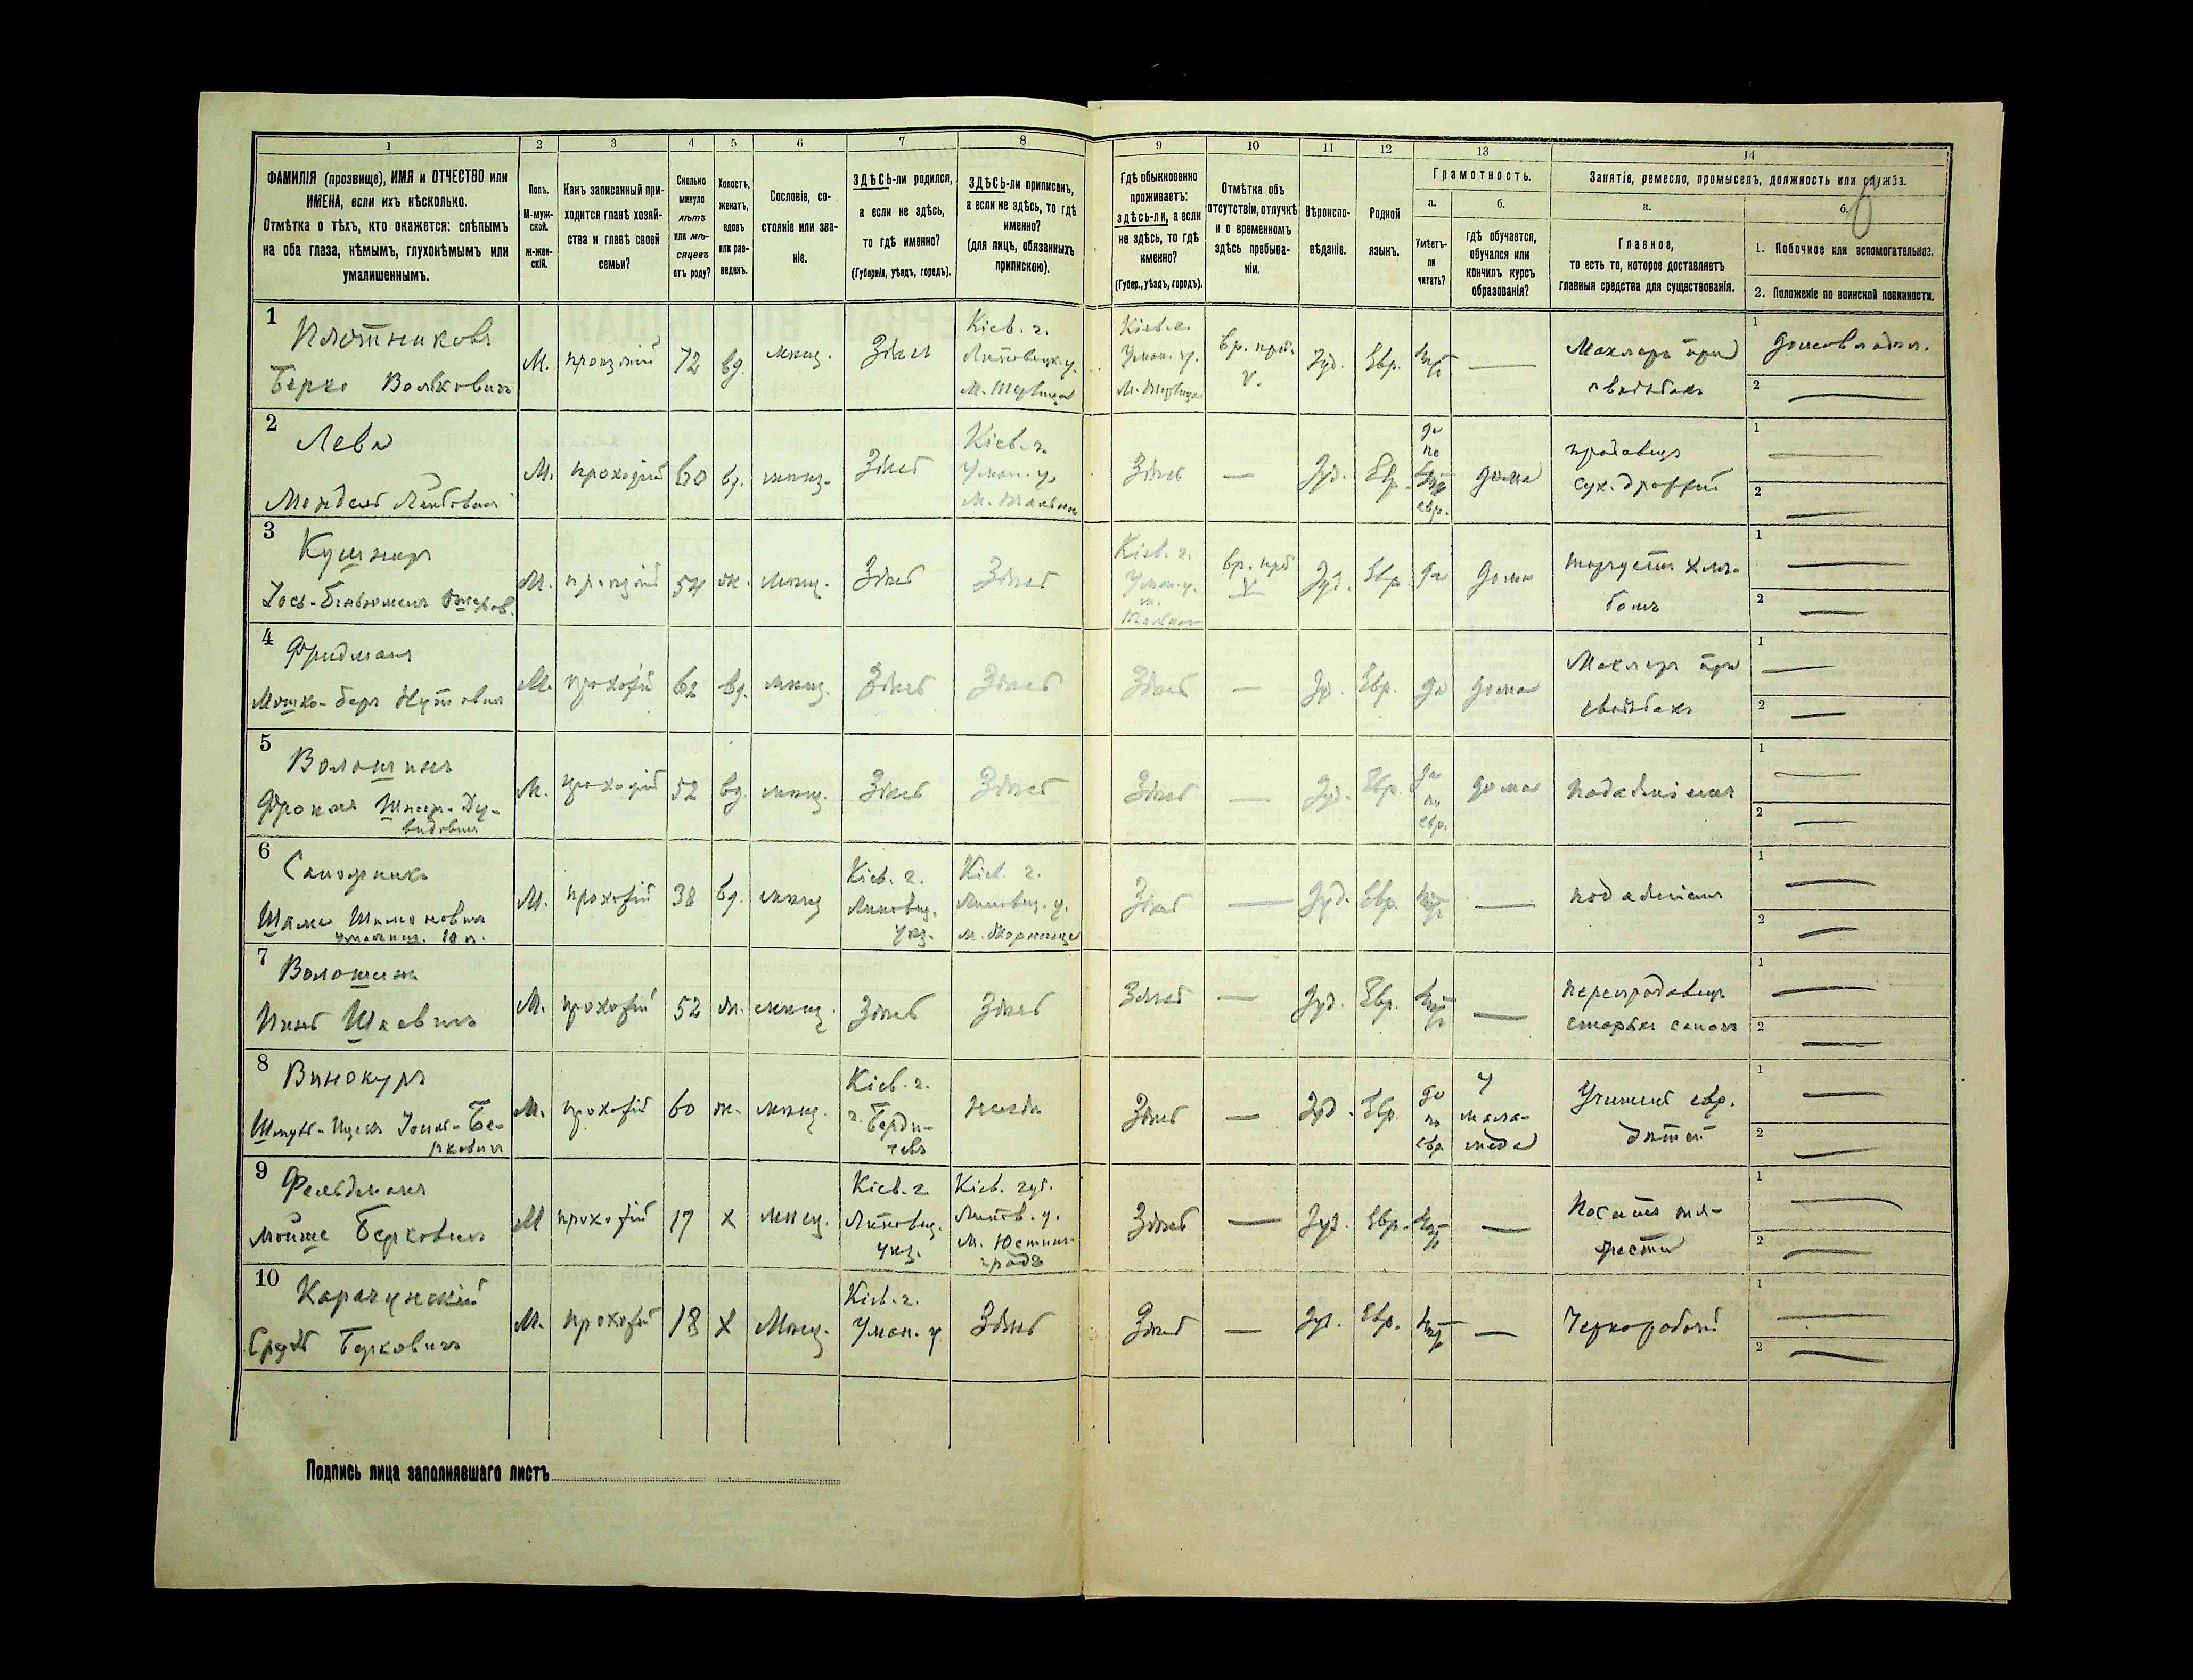 1 2 3 4 5 6 7 8 9 10 11 12 13 14
ФАМИЛІЯ (прозвище), ИМЯ и ОТЧЕСТВО или
ИМЕНА, если ихъ нѣсколько.
Отмѣтка о тѣхъ, кто окажется: слѣпымъ
на оба глаза, нѣмымъ, глухонѣмымъ или
умалишеннымъ.
Полъ.
М-муж-
ской.
Ж-жен-
скій.
Какъ записанный при-
ходится главѣ хозяй-
ства и главѣ своей
семьи?
Сколько
минуло
лѣтъ
или мѣ-
сяцевъ
отъ роду?
Холостъ,
женатъ,
вдовъ
или раз-
веденъ.
Сословіе, со-
стояніе или зва-
ніе.
ЗДѢСЬ-ли родился,
а если не здѣсь,
то гдѣ именно?
(Губернія, уѣздъ, городъ).
ЗДѢСЬ-ли приписанъ,
а если не здѣсь, то гдѣ
именно?
(для лицъ, обязанныхъ
припискою).
Гдѣ обыкновенно
проживаетъ:
здѣсь-ли, а если
не здѣсь, то гдѣ
именно?
(Губер., уѣздъ, городъ).
Отмѣтка объ
отсутствіи, отлучкѣ
и о временномъ
здѣсь пребыва-
ніи.
Вѣроиспо-
вѣданіе.
Родной
языкъ.
Грамотность.
а.
Умѣетъ-
ли
читать?
б.
Гдѣ обучается,
обучался или
кончилъ курсъ
образованія?
Занятіе, ремесло, промыселъ, должность или служба.
а.
Главное,
то есть то, которое доставляетъ
главныя средства для существованія.
б.
1. Побочное или вспомогательное.
2. Положеніе по воинской повинности.
1
Плотниковъ
Берко Волковичъ
М. 72 вд. мѣщ. Здѣсь
Кіев. г.
Липовецк. у.
Кіев. г.
Уман. у.
вр. преб.
V.
Іуд. Евр. нѣтъ —
Маклеръ при
свадьбахъ
1 домовладѣл.
2 —
2
Лева
Мендель Лейбовичъ
М. прохожій 60 вд. мѣщ. Здѣсь
Кіев. г.
Уман. у.
Здѣсь — Іуд. Евр.
да
по
евр.
дома
продавецъ
1 —
2 —
3
Кушниръ
М. 54 ж. мѣщ. Здѣсь Здѣсь
Кіев. г.
Уман. у.
м.
вр. преб
V
Іуд. Евр. да дома
торгуетъ хлѣ-
бомъ
1 —
2 —
4
Фридманъ
Мошко-Беръ Нутовичъ
М. прохожій 62 вд. мѣщ. Здѣсь Здѣсь Здѣсь — Іуд. Евр. да дома
Маклеръ при
свадьбахъ
1 —
2 —
5
Волошинъ
Фроимъ Шмер-Ду-
видовичъ
М. прохожій 52 вд. мѣщ. Здѣсь Здѣсь Здѣсь — Іуд. Евр.
да
по
евр.
дома
подаяніемъ
1 —
2 —
6
М. прохожій 38 вд. мѣщ
Кіев. г.
Липовец.
уѣз.
Кіев. г.
Липовец. у.
Здѣсь — Іуд. Евр. нѣтъ —
подаяніемъ
1 —
2 —
7
Волошинъ
М. прохожій 52 ж. мѣщ. Здѣсь Здѣсь Здѣсь — Іуд. Евр. нѣтъ —
перепродавецъ
старыхъ сапогъ
1 —
2 —
8
Винокуръ
М. прохожій 60 ж. мѣщ.
Кіев. г.
г. Берди-
чевъ
Здѣсь — Іуд. Евр.
да
по
евр
у
мела-
меда
Учитель евр.
дѣтей
1 —
2 —
9
Фельдманъ
Мойше Берковичъ
М прохожій 17 х мѣщ.
Кіев. г.
Липовец.
уѣз.
Кіев. губ.
Липов. у.
м. Юстин-
градъ
Здѣсь — Іуд. Евр. нѣтъ —
Носитъ тя-
жести
1 —
2 —
10
Карачунскій
Сруль Берковичъ
М. прохожій 18 х Мѣщ.
Кіев. г.
Уман. у
Здѣсь Здѣсь — Іуд. Евр. нѣтъ —
Чернорабочій
1 —
2 —
Подпись лица заполнявшаго листъ